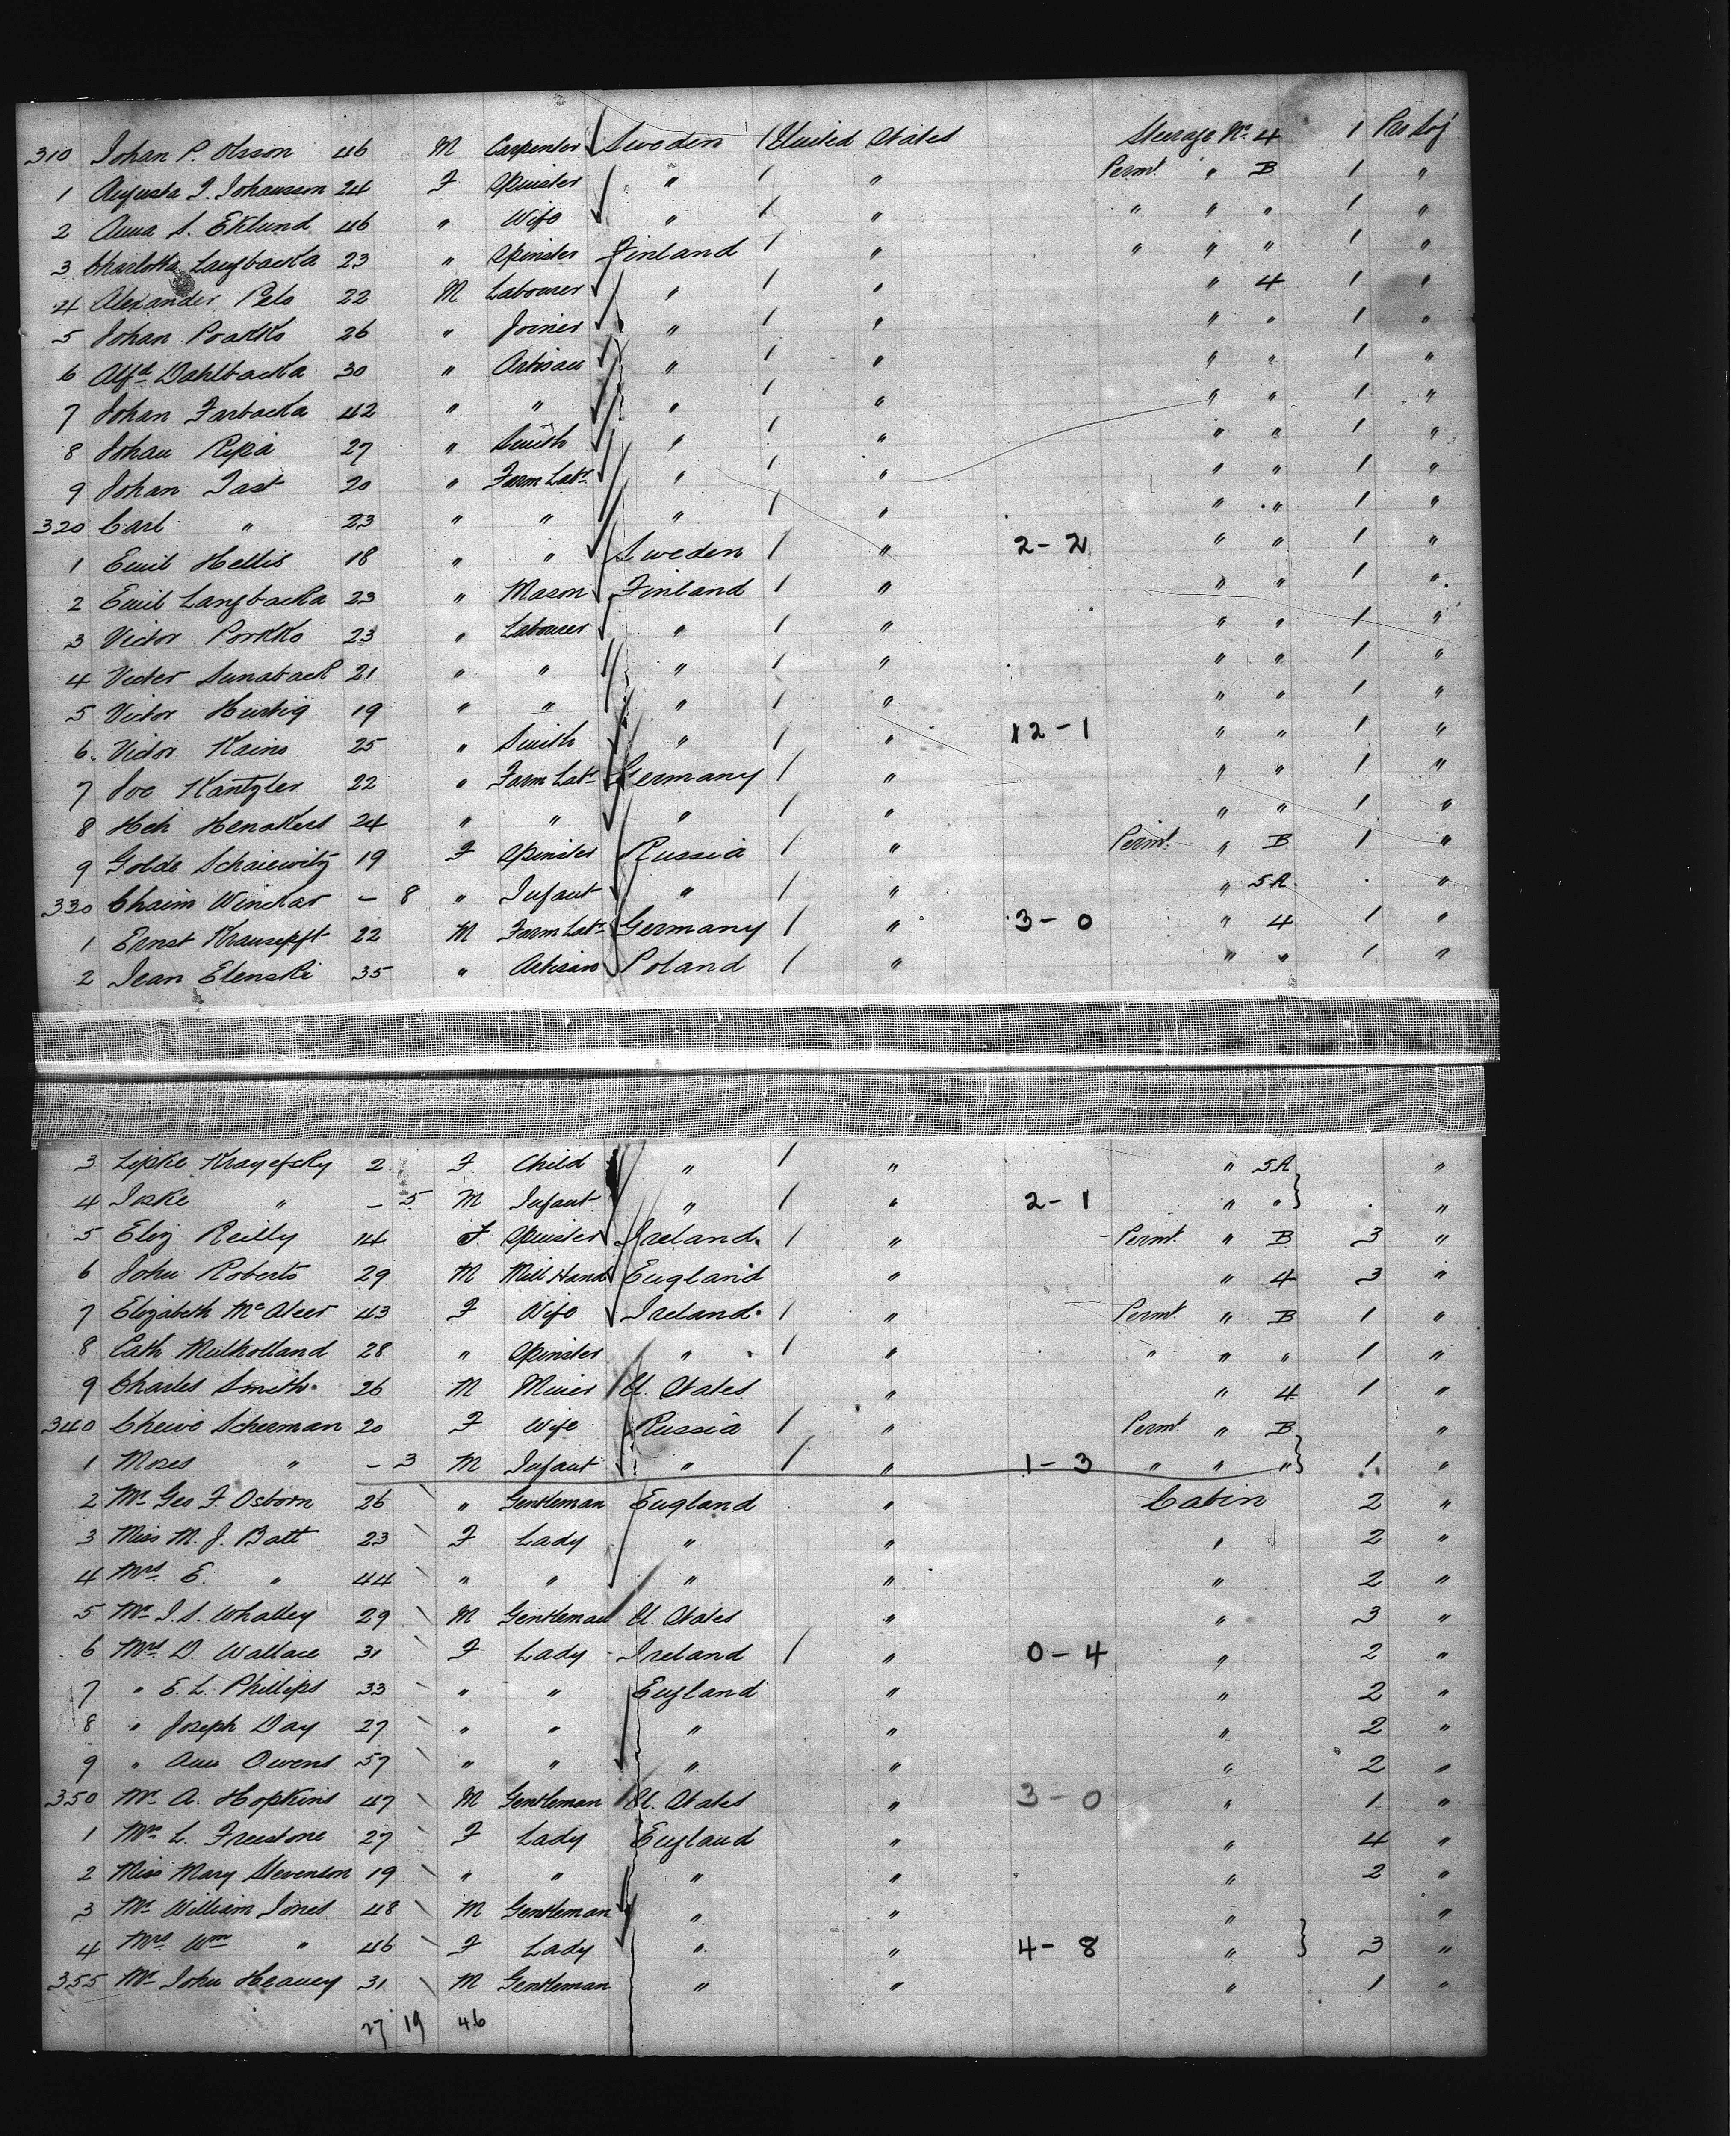 310 Johan P. Olsson 46 M Carpenter Sweden / United States Steerage No. 4 1 Pas Soj
1 Augusta J. Johansson 24 F Spinster " / " Permt. " B 1 "
2 Anna S. Eklund 46 " Wife " / " " " " 1 "
3 Charlotta Langbacka 23 " Spinster Finland / " " " " 1 "
4 Alexander Pelo 22 M Labourer " / " " 4 1 "
5 Johan Porkko 26 " Joiner " / " " " 1 "
6 Alfd. Dahlbacka 30 " Artisan " / " " " 1 "
7 Johan Farbacka 42 " " " / " " " 1 "
8 Johan Ripa 27 " Smith " / " " " 1 "
9 Johan Tast 20 " Farm Labr. " / " " " 1 "
320 Carl " 23 " " " / " " " 1 "
1 Emil Hellis 18 " " Sweden / " 2-2 " " 1 "
2 Emil Langbacka 23 " Mason Finland / " " " 1 "
3 Victor Porkko 23 " Labourer " / " " " 1 "
4 Victor Sunaback 21 " " " / " " " 1 "
5 Victor Hurtig 19 " " " / " " " 1 "
6 Victor Kains 25 " Smith " / " 12-1 " " 1 "
7 Joe Kantzler 22 " Farm Labr. Germany / " " " 1 "
8 Hch 24 " " " / " " " 1 "
9 Golde Schaiewitz 19 F Spinster Russia / " Permt. " B 1 "
330 Chaim Winckar - 8 " Infant " / " " 5A "
1 Ernst Krausepft 22 M Farm Labr. Germany / " 3-0 " 4 1 "
2 Jean Elenski 35 " Artisan Poland / " " " 1 "
3 Lipke Krayefsky 2 F Child " / " " 5A "
4 Iske " - 5 M Infant " / " 2-1 " " "
5 Eliz Reilly 14 F Spinster Ireland / " Permt. " B 3 "
6 John Roberts 29 M Mill Hand England " " 4 3 "
7 Elizabeth McAleer 43 F Wife Ireland / " Permt. " B 1 "
8 Cath Mulholland 28 " Spinster " / " " " " 1 "
9 Charles Smith 26 M Miner U. States " " 4 1 "
340 Cheiwe Scherman 20 F Wife Russia / " Permt. " B "
1 Moses " - 3 M Infant " / " 1-3 " " " 1 "
2 Mr. Geo F. Osborn 26 " Gentleman England " Cabin 2 "
3 Miss M. J. Batt 23 F Lady " " " 2 "
4 Mrs. E. " 44 " " " " " 2 "
5 Mr. J. S. Whalley 29 M Gentleman U. States " " 3 "
6 Mrs. D. Wallace 31 F Lady Ireland / " 0-4 " 2 "
7 " E. L. Phillips 33 " " England " " 2 "
8 " Joseph Day 27 " " " " " 2 "
9 " Ann Owens 57 " " " " " 2 "
350 Mr. A. Hopkins 47 M Gentleman U. States " 3-0 " 1 "
1 Mrs. L. Freestone 27 F Lady England " " 4 "
2 Miss Mary Stevenson 19 " " " " " 2 "
3 Mr. William Jones 48 M Gentleman " " " "
4 Mrs. Wm " 46 F Lady " " 4-8 " 3 "
355 Mr. John Heaney 31 M Gentleman " " " 1 "
27 19 46